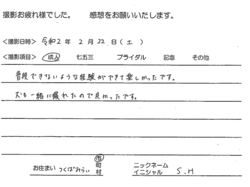 撮影お疲れ様でした。 感想をお願いいたします。
<撮影日時> 令和2年 2月 22日(土)
<撮影項目> 成人 七五三 ブライダル 記念 その他
普段できないような経験ができて楽しかったです。
犬も一緒に撮れたので良かったです。
お住まい つくばみらい 市 町 村
ニックネーム
イニシャル S.H